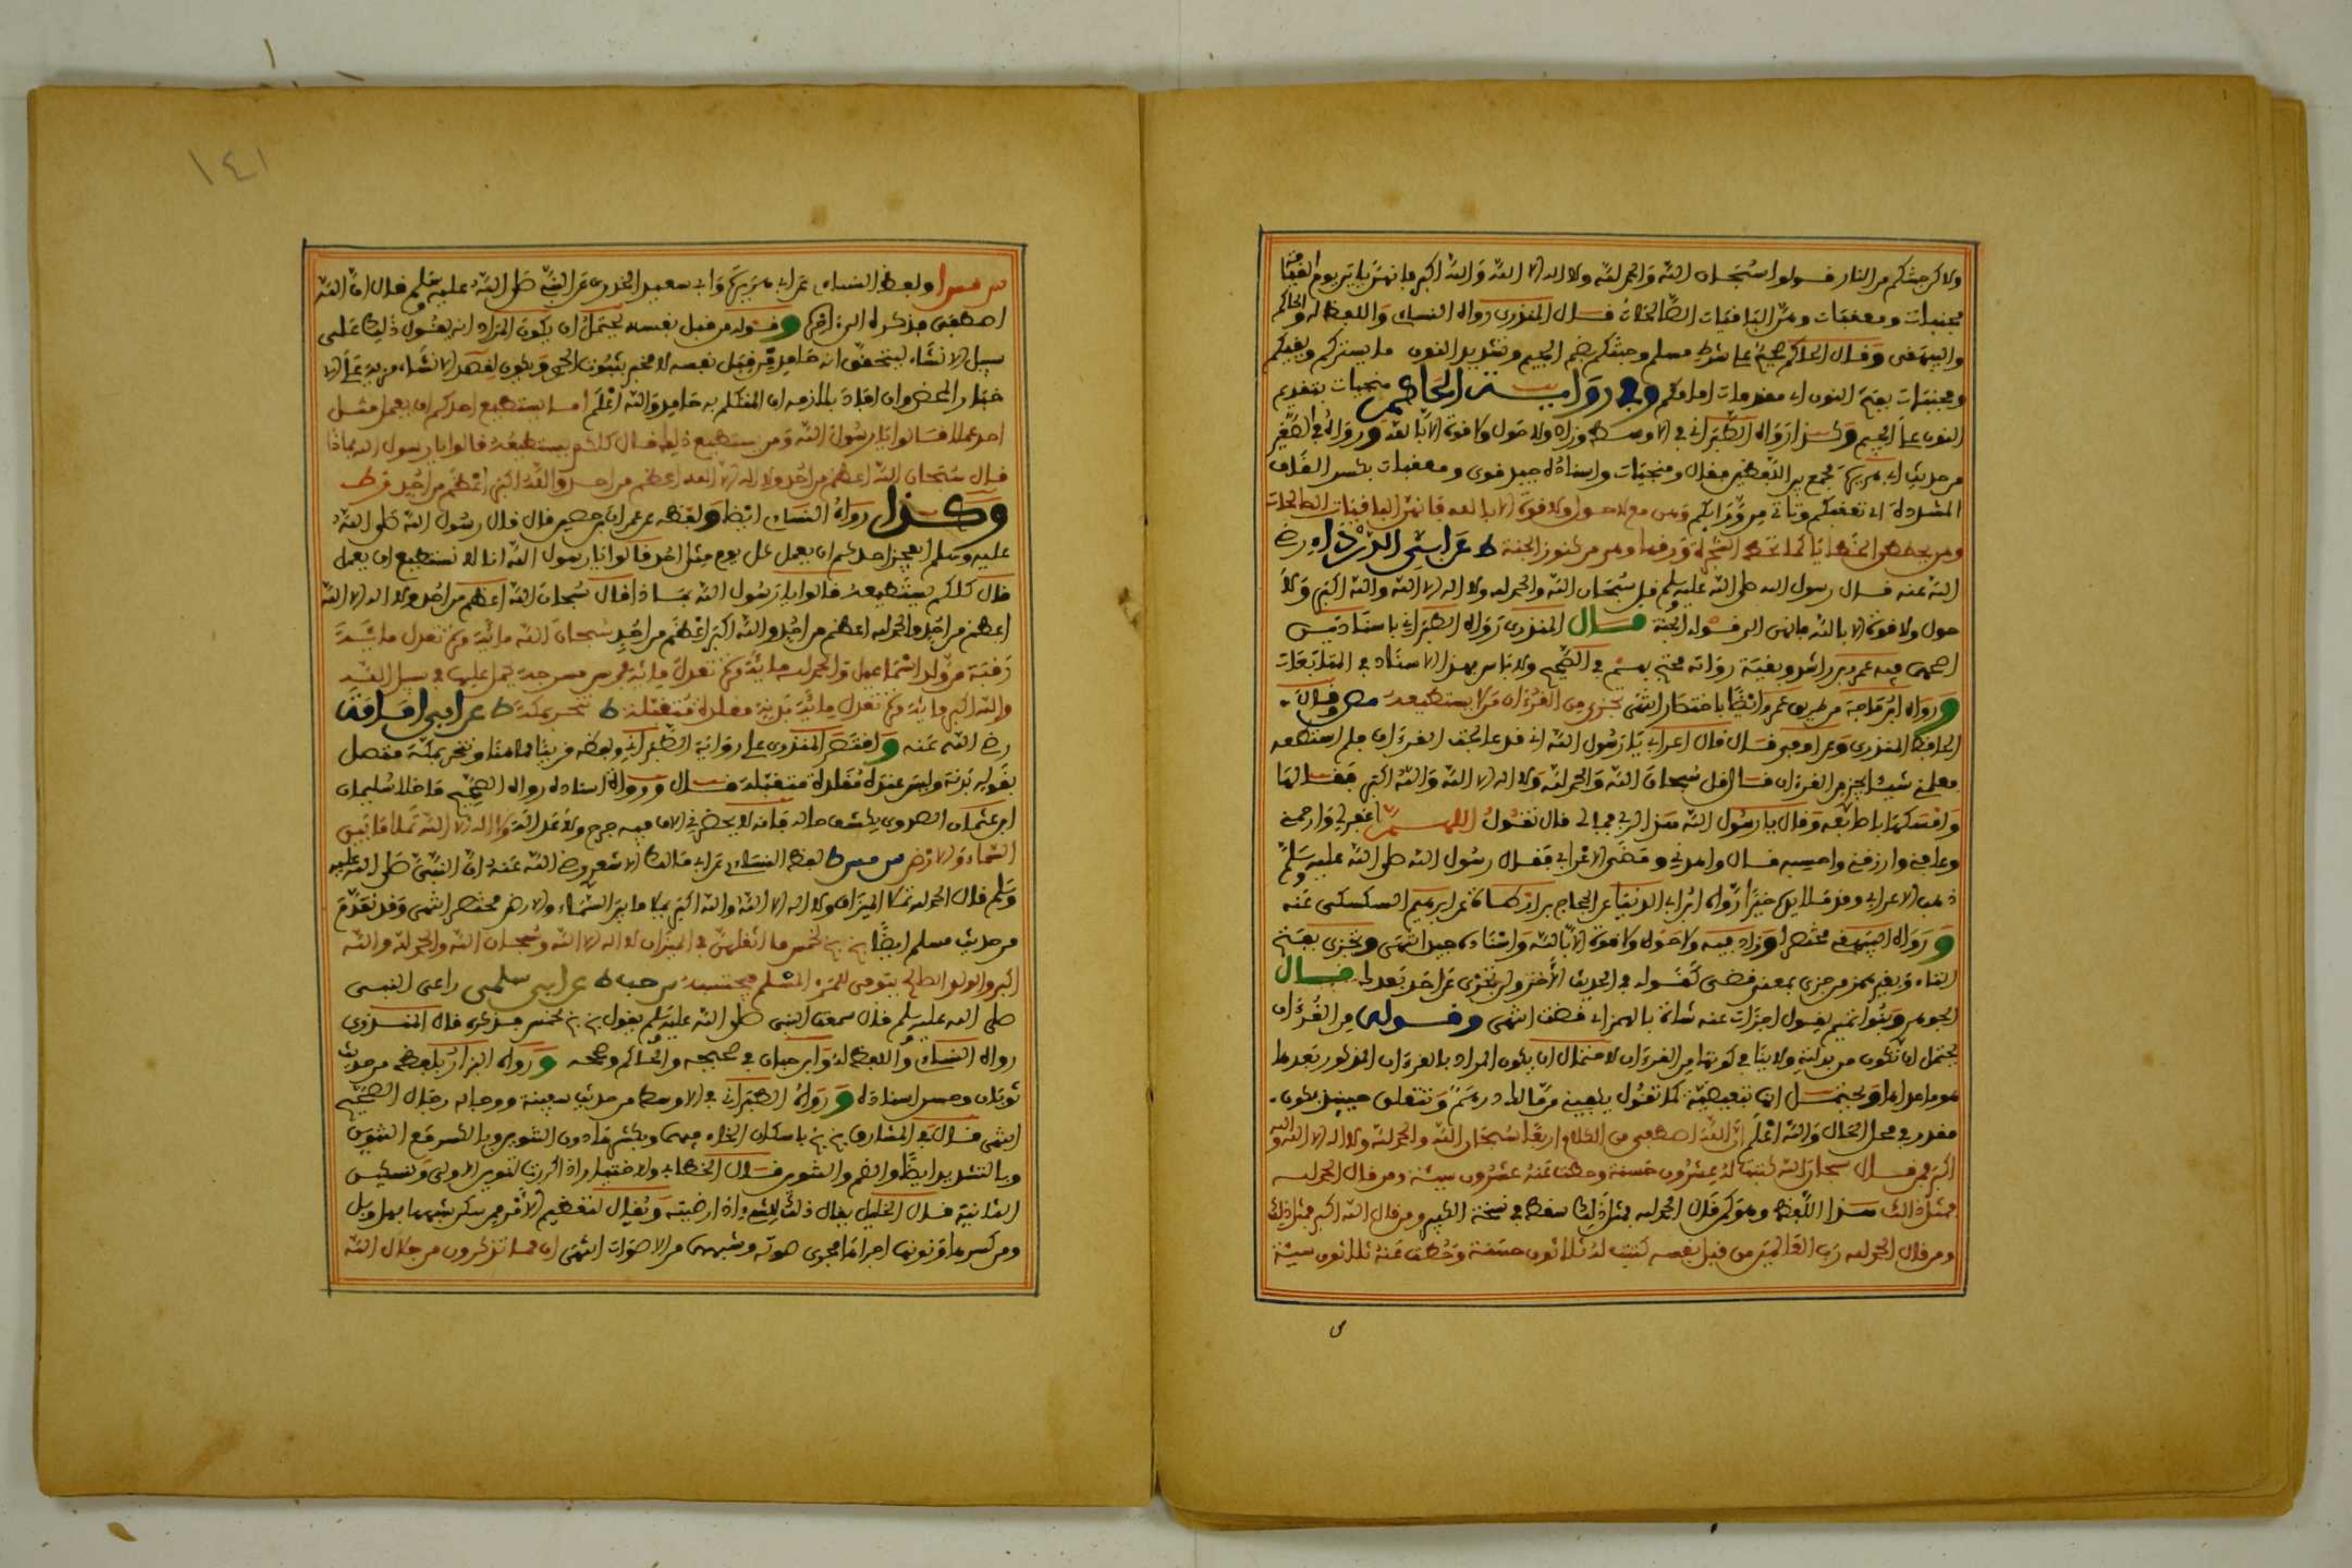 ولاكن جنتكم من النار فـولوا سبحان الله والحمد لله ولا اله الا الله والله اكبر فانهن ياتين يوم القيامة
مجنبات ومعقبات وهن الباقيات الصالحات فـال المنذري رواه النساءي واللفظ له والحاكم
والبيهقي وفـال الحاكم صحيح على شرط مسلم وجنتكم بضم الجيم وتشديد النون ما يستركم ويفيكم
ومجنبات بفتح النون اي مقدمات امامكم وفي رواية الحاكم منجيات بتقديم
النون على الجيم وكذا رواه الطبراني في الاوسط وزاد ولا حول ولا قوة الا بالله ورواه في الصغير
من حديث ابي هريرة فجمع بين اللفظين فقال ومنجيات واسناده جيد قوي ومعقبات بكسر القاف
المشددة اي تعقبكم وتاتي من ورايكم وهن مع لا حول ولا قوة الا بالله فانهن الباقيات الصالحات
وهن يحططن الخطايا كما تحط الشجرة ورقها وهن من كنوز الجنة ط عن ابي الدرداء رضي
الله عنه فـال رسول الله صلى الله عليه وسلم قل سبحان الله والحمد لله ولا اله الا الله والله اكبر ولا
حول ولا قوة الا بالله فانهن الى قـوله الجنة فـال المنذري رواه الطبراني باسنادين
اصحهما فيه عمر بن راشد وبقية رواته محتج بهم في الصحيح ولا باس بهذا الاسناد في المتابعات
ورواه ابن ماجة من طريق عمر ايضا باختصار انتهى تجزي من القرءان من لا يستطيعه مص وقال
الحافظ المنذري وعن ابن ابي اوفى فـال قال اعرابي يا رسول الله اني قد عالجت القرءان فلم استطعه
فعلمني شيئا يجزي من القرءان فـال قل سبحان الله والحمد لله ولا اله الا الله والله اكبر فقـالها
وامسكها باصابعه وقال يا رسول الله هذا لربي فما لي قال تقول اللهـم اغفر لي وارحمني
وعافني وارزقني واحسبه فـال واهدني ومضى الاعرابي فقال رسول الله صلى الله عليه وسلم
ذهب الاعرابي وقد ملا يديه خيرا رواه ابن ابي الدنيا عن الحجاج بن ارطاة عن ابراهيم السكسكي عنه
ورواه البيهقي مختصرا وزاد فيه ولا حول ولا قوة الا بالله واسناده جيد انتهى وتجزي بفتح
التاء وبغير همز من جزى بمعنى قضى كقوله في الحديث الاخر ولن تجزي عن احد بعدك فـال
الجوهري وبنوا تميم يقـول اجزات عنه شاة بالهمز اي قضت انتهى وفـوله من القرءان
يحتمل ان تكون من بدلية ولا ينافي كونها من القرءان لاحتمال ان يكون المراد بالقرءان المذكور بعدها
هو ما عداها ويحتمـل انها تبعيضية كما تقول يكفيني من مالك درهم وتتعلق حينئذ بكون
مقدر في محل الحال والله اعلم ان الله اصطفى من الكلام اربعا سبحان الله والحمد لله ولا اله الا الله والله
اكبر فمن قـال سبحان الله كتبت له عشرون حسنة وحطت عنه عشرون سيئة ومن قال الحمد لله
فمثل ذلك هـذا اللفظ وهو كمن قال الحمد لله فمثل ذلك سقط في نسخة الكبير ومن قال الله اكبر فمثل ذلك
ومن قال الحمد لله رب العالمين من قبل نفسه كتبت له ثلاثون حسنة وحطت عنه ثلاثون سيئة
١٤١
س مس ا ولفظ النساءي عن ابي هريرة وابي سعيد الخدري عن النبي صلى الله عليه وسلم قال ان الله
اصطفى فذكره الى ءاخره وقـوله من قبل نفسه يحتمل ان يكون المراد انه يقول ذلك على
سبيل الانشاء ليتحقق انه حامد من قبل نفسه لا مخبر بثبوت الحمد ويكون لقصد الانشاء مزية على الا
خبار المحض وان افاد بالملازمة ان المتكلم به حامد والله اعلم امـا يستطيع احدكم ان يعمل مثـل
احد عملا فقـالوا يا رسول الله ومن يستطيع ذلك قـال كلكم يستطيعه قالوا يا رسول الله بماذا
قـال سبحان الله اعظم من احد ولا اله الا الله اعظم من احد والله اكبر اعظم من احد فـر ط
وكـذا رواه النساءي ايضا ولفظه عن عمران بن حصين قال قال رسول الله صلى الله
عليه وسلم ايعجز احدكم ان يعمل كل يوم مثل احد قالوا يا رسول الله انا لا نستطيع ان يعمل
قال كلكم يستطيعه قالوا يا رسول الله بمـاذا قال سبحان الله اعظم من احد ولا اله الا الله
اعظم من احد والحمد لله اعظم من احد والله اكبر اعظم من احد سبحان الله مائة مرة تعدل مائـة
رقبة من ولد اسماعيل والحمد لله مائة مرة تعدل مائة فرس مسرجة يحمل عليها في سبيل الله
والله اكبر مائة مرة تعدل مائة بدنة مقلدة متقبلة ط تنحر بمكة ط عن ابي امامة
رضي الله عنه واقتصر المنذري على رواية الطبراني ولفظه قريبا مما هنا وتنحر بمكة متصل
بقوله بدنة وليس عنده مقلدة متقبلة قـال ورواة اسناده رواة الصحيح ما خلا سليمان
ابن عثمان الصدوي يكشف حاله فانه لا يحضرني الان فيه جرح ولا عدالة ولا اله الا الله تملا ما بين
السماء والارض س مس ط لفظ النساءي عن ابي مالك الاشعري رضي الله عنه ان النبي صلى الله عليه
وسلم قال الحمد لله تملا الميزان ولا اله الا الله والله اكبر تملا ما بين السماء والارض مختصر انتهى وقد تقدم
من حديث مسلم ايضا بخ بخ لخمس ما اثقلهن في الميزان لا اله الا الله وسبحان الله والحمد لله والله
اكبر والولد الصالح يتوفى للمرء المسلم فيحتسبه س حب ط عن ابي سلمى راعي النبي
صلى الله عليه وسلم قال سمعت النبي صلى الله عليه وسلم يقول بخ بخ لخمس فذكره قال المنـذري
رواه النساءي واللفظ له وابن حبان في صحيحه والحاكم وصححه ورواه البزار بلفظه من حديث
ثوبان وحسن اسناده ورواه الطبراني في الاوسط من حديث سفينة ورجاله رجال الصحيح
انتهى قـال في المشارق بخ بخ باسكان الخاء فيهما وبكسرها دون التنوين وبالكسر مع التنوين
وبالتشديد ايضا والضم والتنوين قـال الخطابي والاختيار اذا كررت تنوين الاولى وتسكين
الثانية قـال الخليل يقال ذلك للشيء اذا رضيته ويقال لتعظيم الامر فمن سكن شبهها بهل وبل
ومن كسرها ونونها اجراها مجرى صوت وشبهها من الاصوات انتهى ان ممـا تذكرون من جلال الله